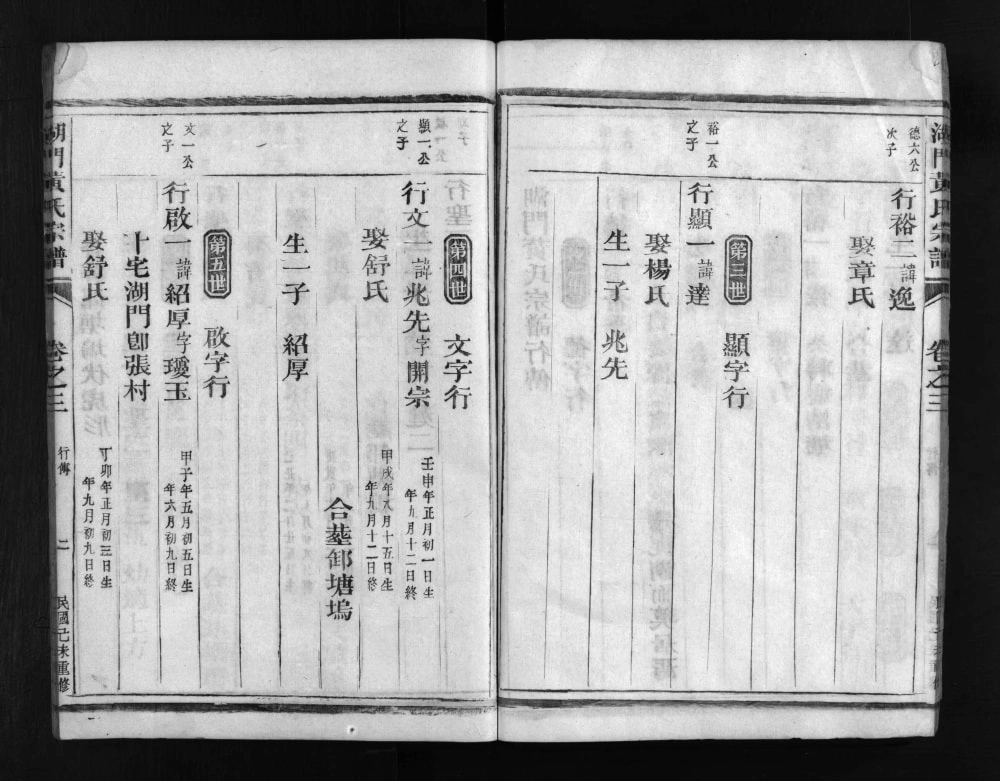 湖門黃氏宗譜
卷之三
德六公
次子
行裕二諱逸
娶章氏
第三世
顯字行
裕一公
之子
行顯一諱達
娶楊氏
生一子 兆先
第四世
文字行
顯一公
之子
行文一諱兆先字開宗
壬申年正月初一日生
年九月十二日終
娶舒氏
甲戌年八月十五日生
年九月十二日終
合塟卸塘塢
生一子 紹厚
第五世
啟字行
文一公
之子
行啟一諱紹厚字瓊玉
甲子年五月初五日生
年六月初九日終
卜宅湖門卽張村
娶舒氏
丁卯年正月初三日生
年九月初九日終
湖門黃氏宗譜
卷之三
行傳
二
民國己未重修